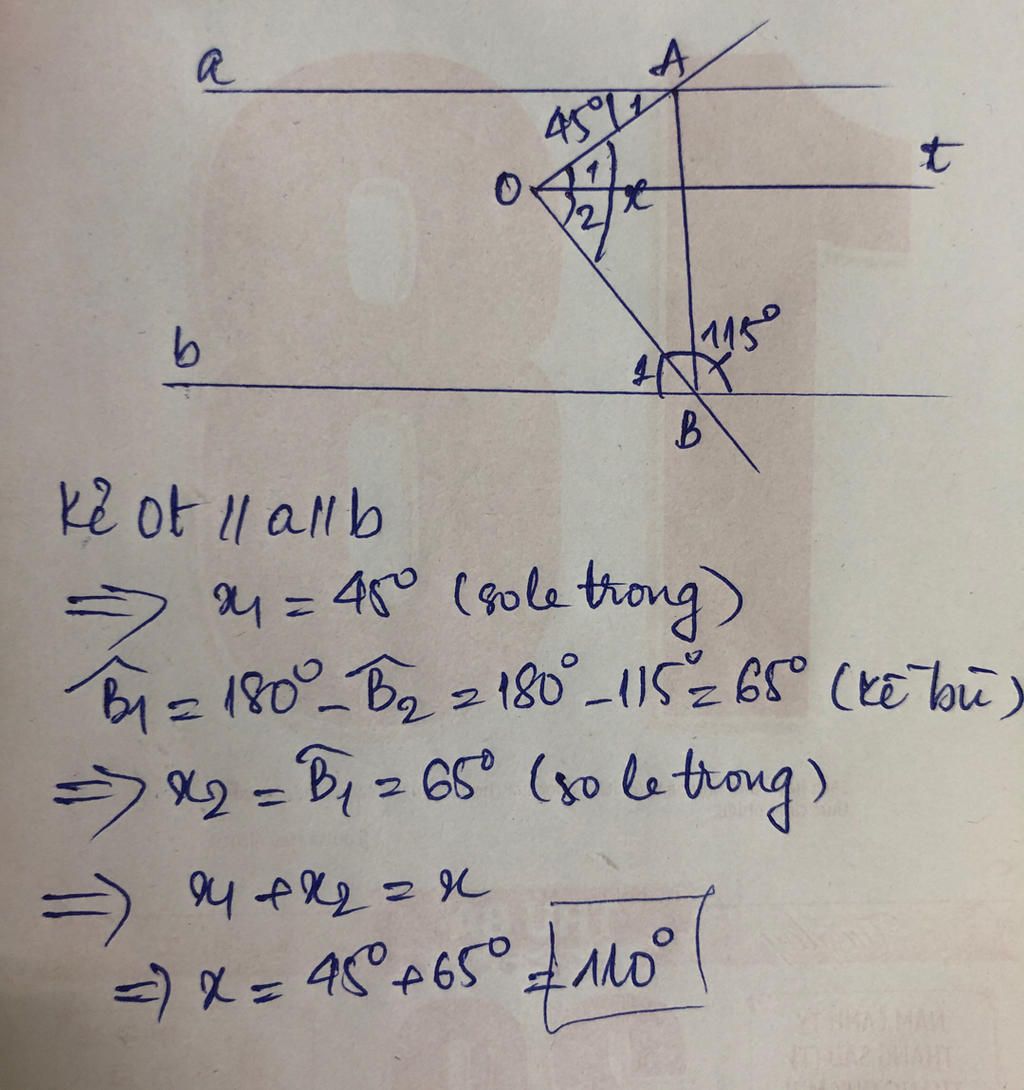 a
A
45° 1
t
O 1 x
2
115°
b
1
B
Kẻ Ot // a // b
⇒ x₁ = 45° (so le trong)
B̂₁ = 180° - B̂₂ = 180° - 115° = 65° (kề bù)
⇒ x₂ = B̂₁ = 65° (so le trong)
⇒ x₁ + x₂ = x
⇒ x = 45° + 65° = 110°